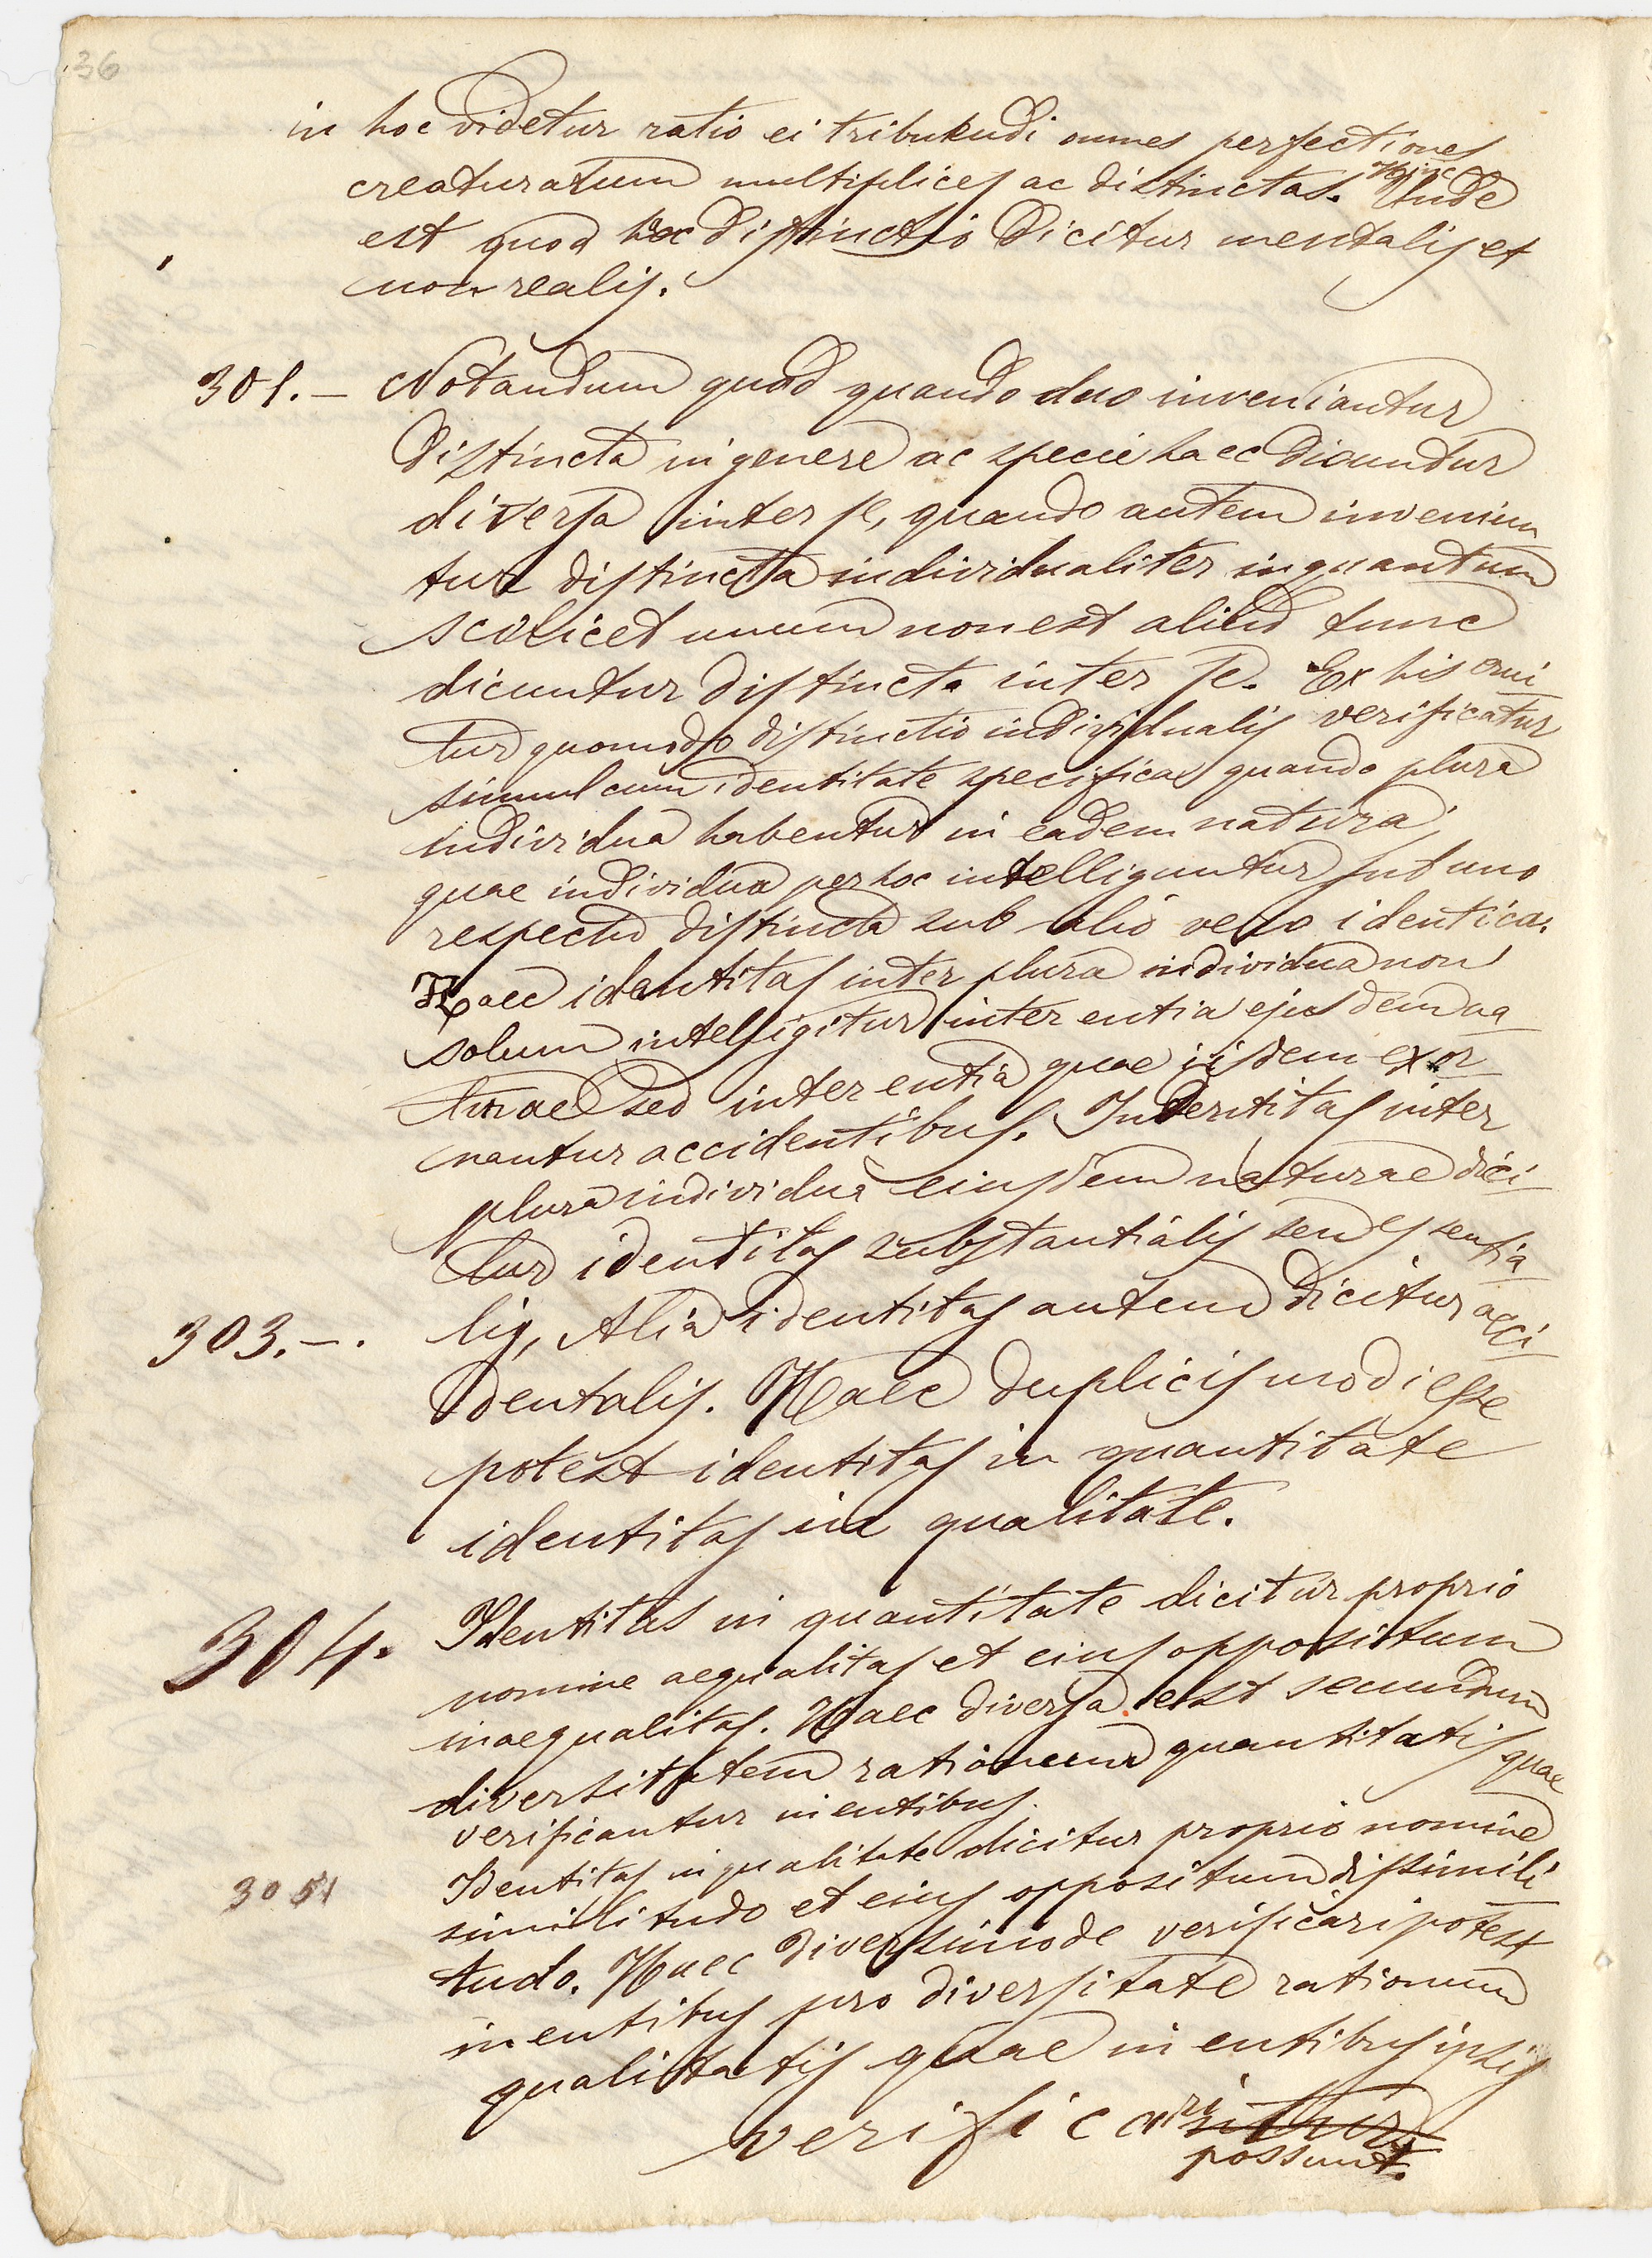 36
in hoc videtur ratio ei tribuendi omnes perfectiones
creaturarum multiplices ac distinctas. Hinc Unde
est quod haec distinctio dicitur mentalis et
non realis.
301. — Notandum quod quando duo inveniantur
distincta in genere ac specie haec dicuntur
diversa inter se, quando autem inveniun
tur distincta individualiter in quantum
scilicet unum non est aliud tunc
dicuntur distincta inter se. Ex his erui
tur quomodo distinctio individualis verificatur
simul cum identitate specifica quando plura
individua habentur in eadem natura,
quae individua per hoc intelliguntur sub uno
respectu distincta sub alio vero identica.
Haec identitas inter plura individua non
solum intelligitur inter entia ejusdem na
turae sed inter entia quae iisdem exor
nantur accidentibus. Indentitas inter
plura individua eiusdem naturae dici
tur identitas substantialis seu essentia
303. —. lis, Alia identitas autem dicitur acci
dentalis. Haec duplicis modi esse
potest identitas in quantitate
identitas in qualitate.
304. Identitas in quantitate dicitur proprio
nomine aequalitas et eius oppositum
inaequalitas. Haec diversa est secundum
diversitatem rationum quantitatis quae
verificantur in entibus.
305 Identitas in qualitate dicitur proprio nomine
similitudo et eius oppositum dissimili
tudo. Haec diversimode verificari potest
in entibus pro diversitate rationum
qualitatis quae in entibus ipsis
verificari
possunt.